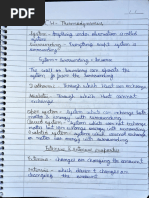 CH - Thermodynamics
System - Anything under observation is called system
Surrounding - Everything except system is surrounding
System + Surrounding = Universe
The wall or boundary can separate the system from the surrounding
Diathermic - Through which Heat can exchange
Adiabatic - Through which Heat cannot exchange
Open system - System which can exchange both matter and energy with surrounding
Closed system - System can exchange heat but not matter with surrounding
Isolated System - System which can not exchange energy and matter with surrounding
Intensive & Extensive properties
Extensive - changes on changing the amount
Intensive - which doesn't change on changing the amount